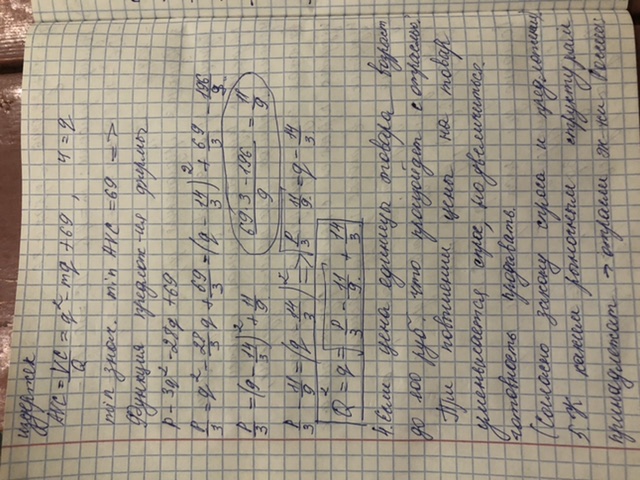 издержек
AVC = VC/Q = q² - mq + 69, 4 = q
min знач. min AVC - 69 =>
Функция предлож-ия фирмы
P - 3q² - 28q + 69
P/3 = q² - 28/3 q + 69/3 = (q - 14/3)² + 69/3 - 196/9
P/3 = (q - 14/3)² + 11/9
69·3 - 196 / 9 = 11/9
P/3 - 11/9 = (q - 14/3)² => √P/3 - 11/9 = q - 14/3
Q² = q = √P/3 - 11/9 + 14/3
4. Если цена единицы товара возраст
до 100 руб что произойдет с отраслью?
При повышении цены на товар
уменьшается спрос, но увеличится
готовность продавать
(Согласно закону спроса и предложения)
5. К каким рыночным структурам
принадлежат → отрасли эк-ки России: